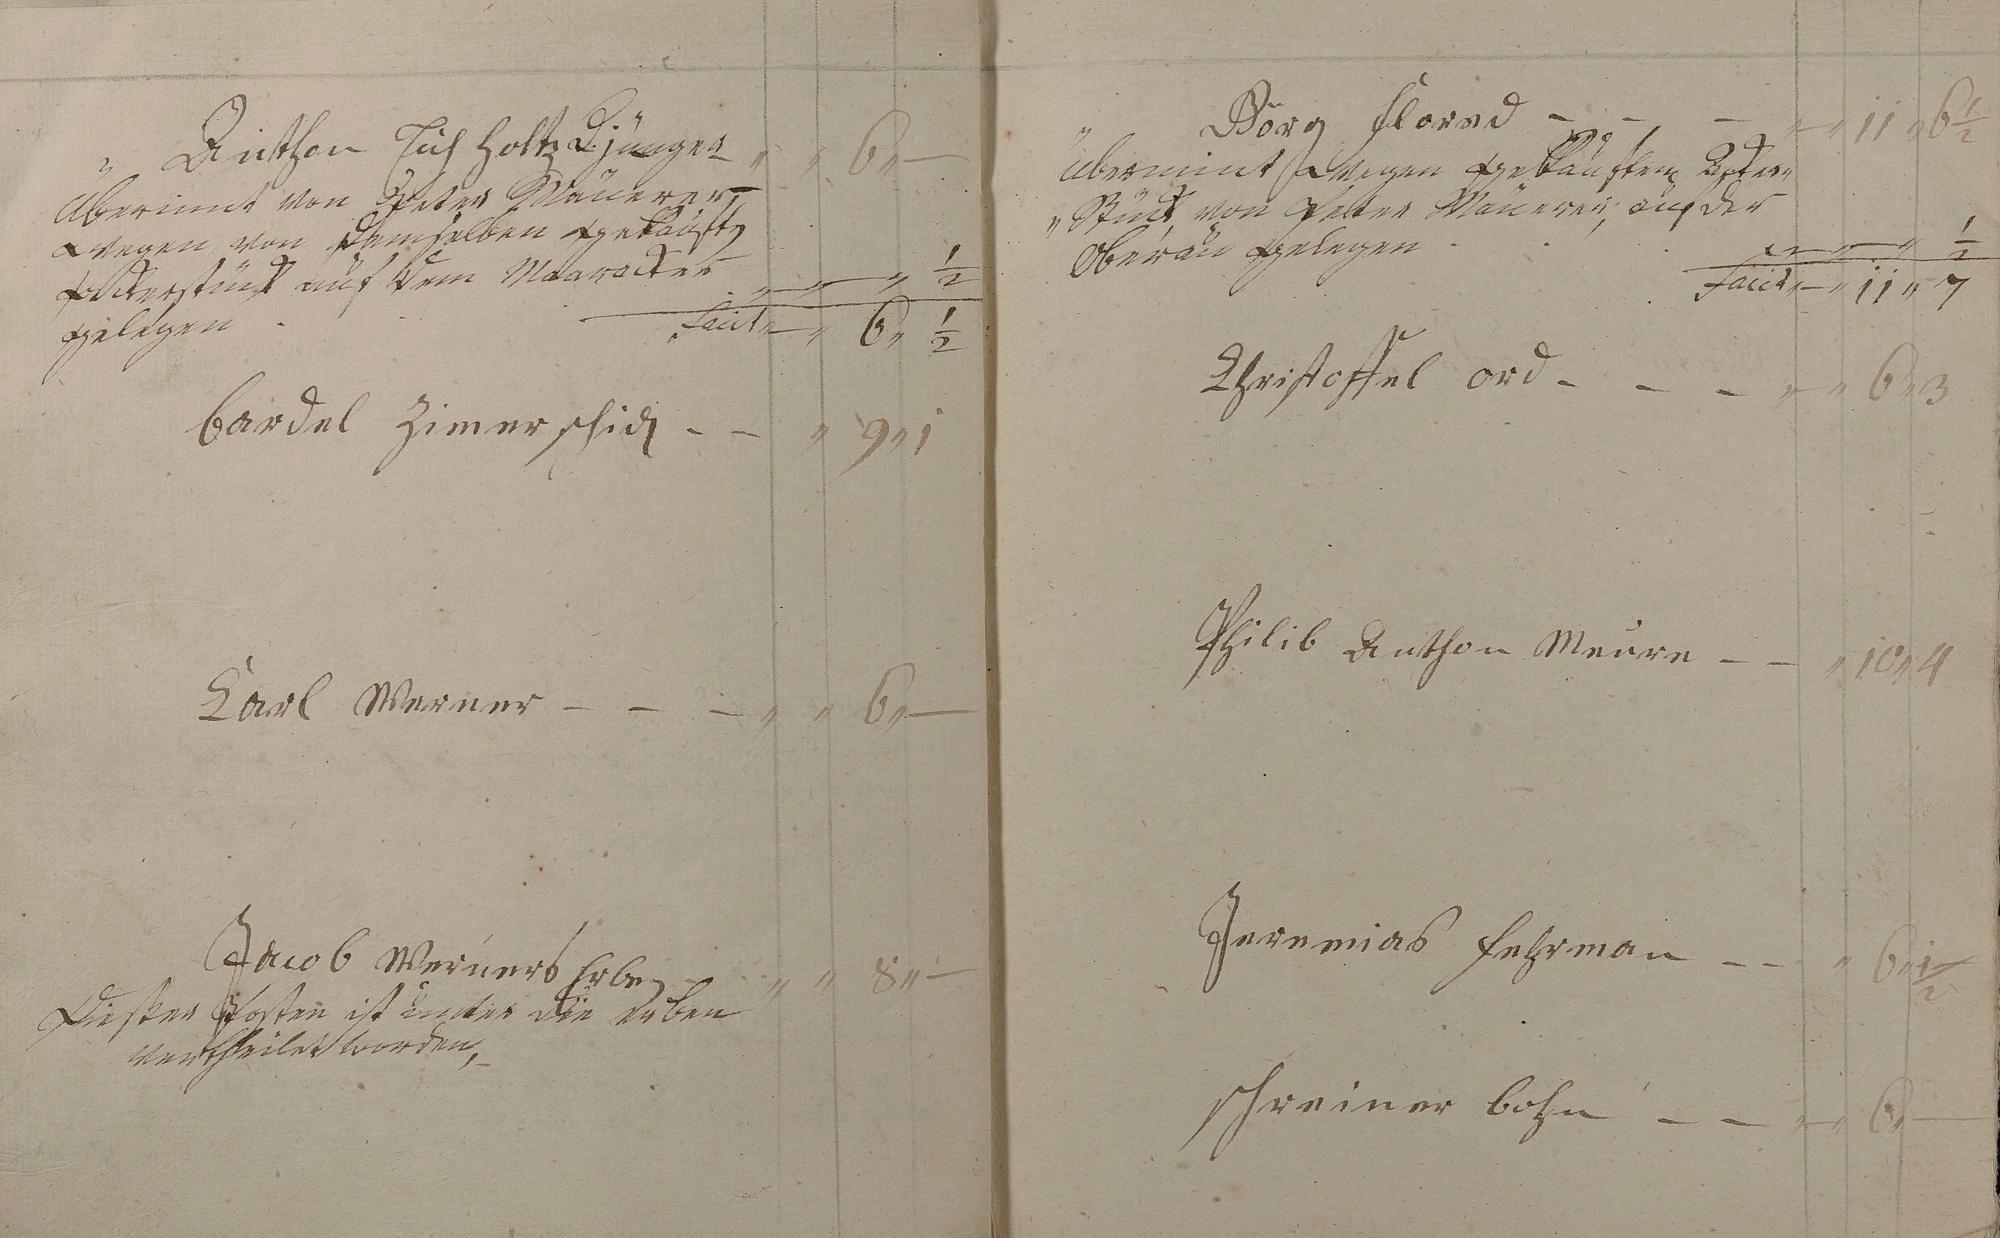 " Anthon Eich holtz D. jünger " " 6 " —
übernimt von Peter Mäuerer
wegen von demselben gekauft
Ackerstück auf dem Maaracker " — " ½
gelegen . facit " — " 6 " ½
bardel Zimerschid — — " 9 " 1
Carl Werner — — — " " 6 " —
Jacob Werners Erben " " 8 " —
Dieser Posten ist unter die erben
vertheilet worden,
Börg florad — — — " 11 " 6½
übernimt wegen gekauftem Acker
" Stück von Peter Mäuerer, auf der
Oberau gelegen . — — " ½
facit " — " 11 " 7
Christoffel ord — — — " — " 6 " 3
Philib Anthon Meure — — " 10 " 4
Jeremias fehrman — — " 6 " ½
schreiner bohn — — " — " 6 " —